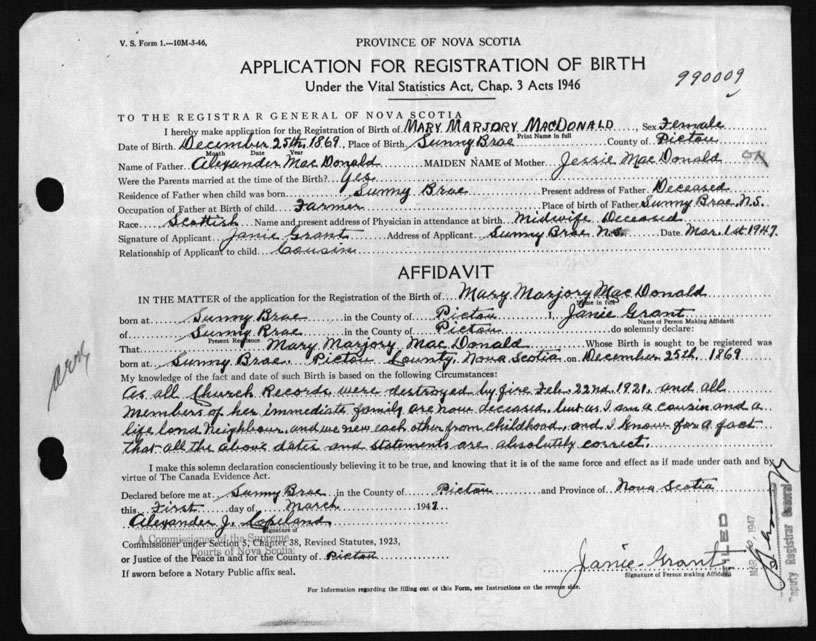 V. S. Form 1.—10M-3-46,
PROVINCE OF NOVA SCOTIA
APPLICATION FOR REGISTRATION OF BIRTH
990009
Under the Vital Statistics Act, Chap. 3 Acts 1946
TO THE REGISTRAR GENERAL OF NOVA SCOTIA
I hereby make application for the Registration of Birth of MARY MARJORY MACDONALD, Sex Female
Print Name in full
Date of Birth December 25th, 1869, Place of Birth Sunny Brae County of Pictou
Month Date Year
Name of Father Alexander MacDonald MAIDEN NAME of Mother Jessie MacDonald
Were the Parents married at time of the Birth? Yes
Residence of Father when child was born Sunny Brae Present address of Father Deceased
Occupation of Father at Birth of child Farmer Place of birth of Father Sunny Brae, N.S.
Race Scottish Name and present address of Physician in attendance at birth Midwife Deceased
Signature of Applicant Janie Grant Address of Applicant Sunny Brae, N.S. Date Mar. 1st 1947
Relationship of Applicant to child Cousin
AFFIDAVIT
IN THE MATTER of the application for the Registration of the Birth of Mary Marjory MacDonald
Name in full
born at Sunny Brae in the County of Pictou I, Janie Grant
Name of Person Making Affidavit
of Sunny Brae in the County of Pictou do solemnly declare:
Present Residence
That Mary Marjory MacDonald Whose Birth is sought to be registered was
born at Sunny Brae, Pictou County, Nova Scotia on December 25th, 1869
My knowledge of the fact and date of such Birth is based on the following Circumstances:
As all Church Records were destroyed by fire Feb. 22nd. 1921, and all
members of her immediate family are now deceased, but as I am a cousin and a
life lond Neighbour, and we new each other from childhood, and I know for a fact
that all the above dates and statements are absolutely correct.
I make this solemn declaration conscientiously believing it to be true, and knowing that it is of the same force and effect as if made under oath and by
virtue of The Canada Evidence Act.
Declared before me at Sunny Brae in the County of Pictou and Province of Nova Scotia
this First day of March 1947
Alexander J. Copeland
Signature of
A Commissioner of the Supreme
Commissioner under Section 5, Chapter 38, Revised Statutes, 1923,
Courts of Nova Scotia
or Justice of the Peace in and for the County of Pictou
If sworn before a Notary Public affix seal.
Janie Grant
Signature of Person Making Affidavit
For Information regarding the filling out of this Form, see Instructions on the reverse side.
FILED
MAR 1947
Deputy Registrar General